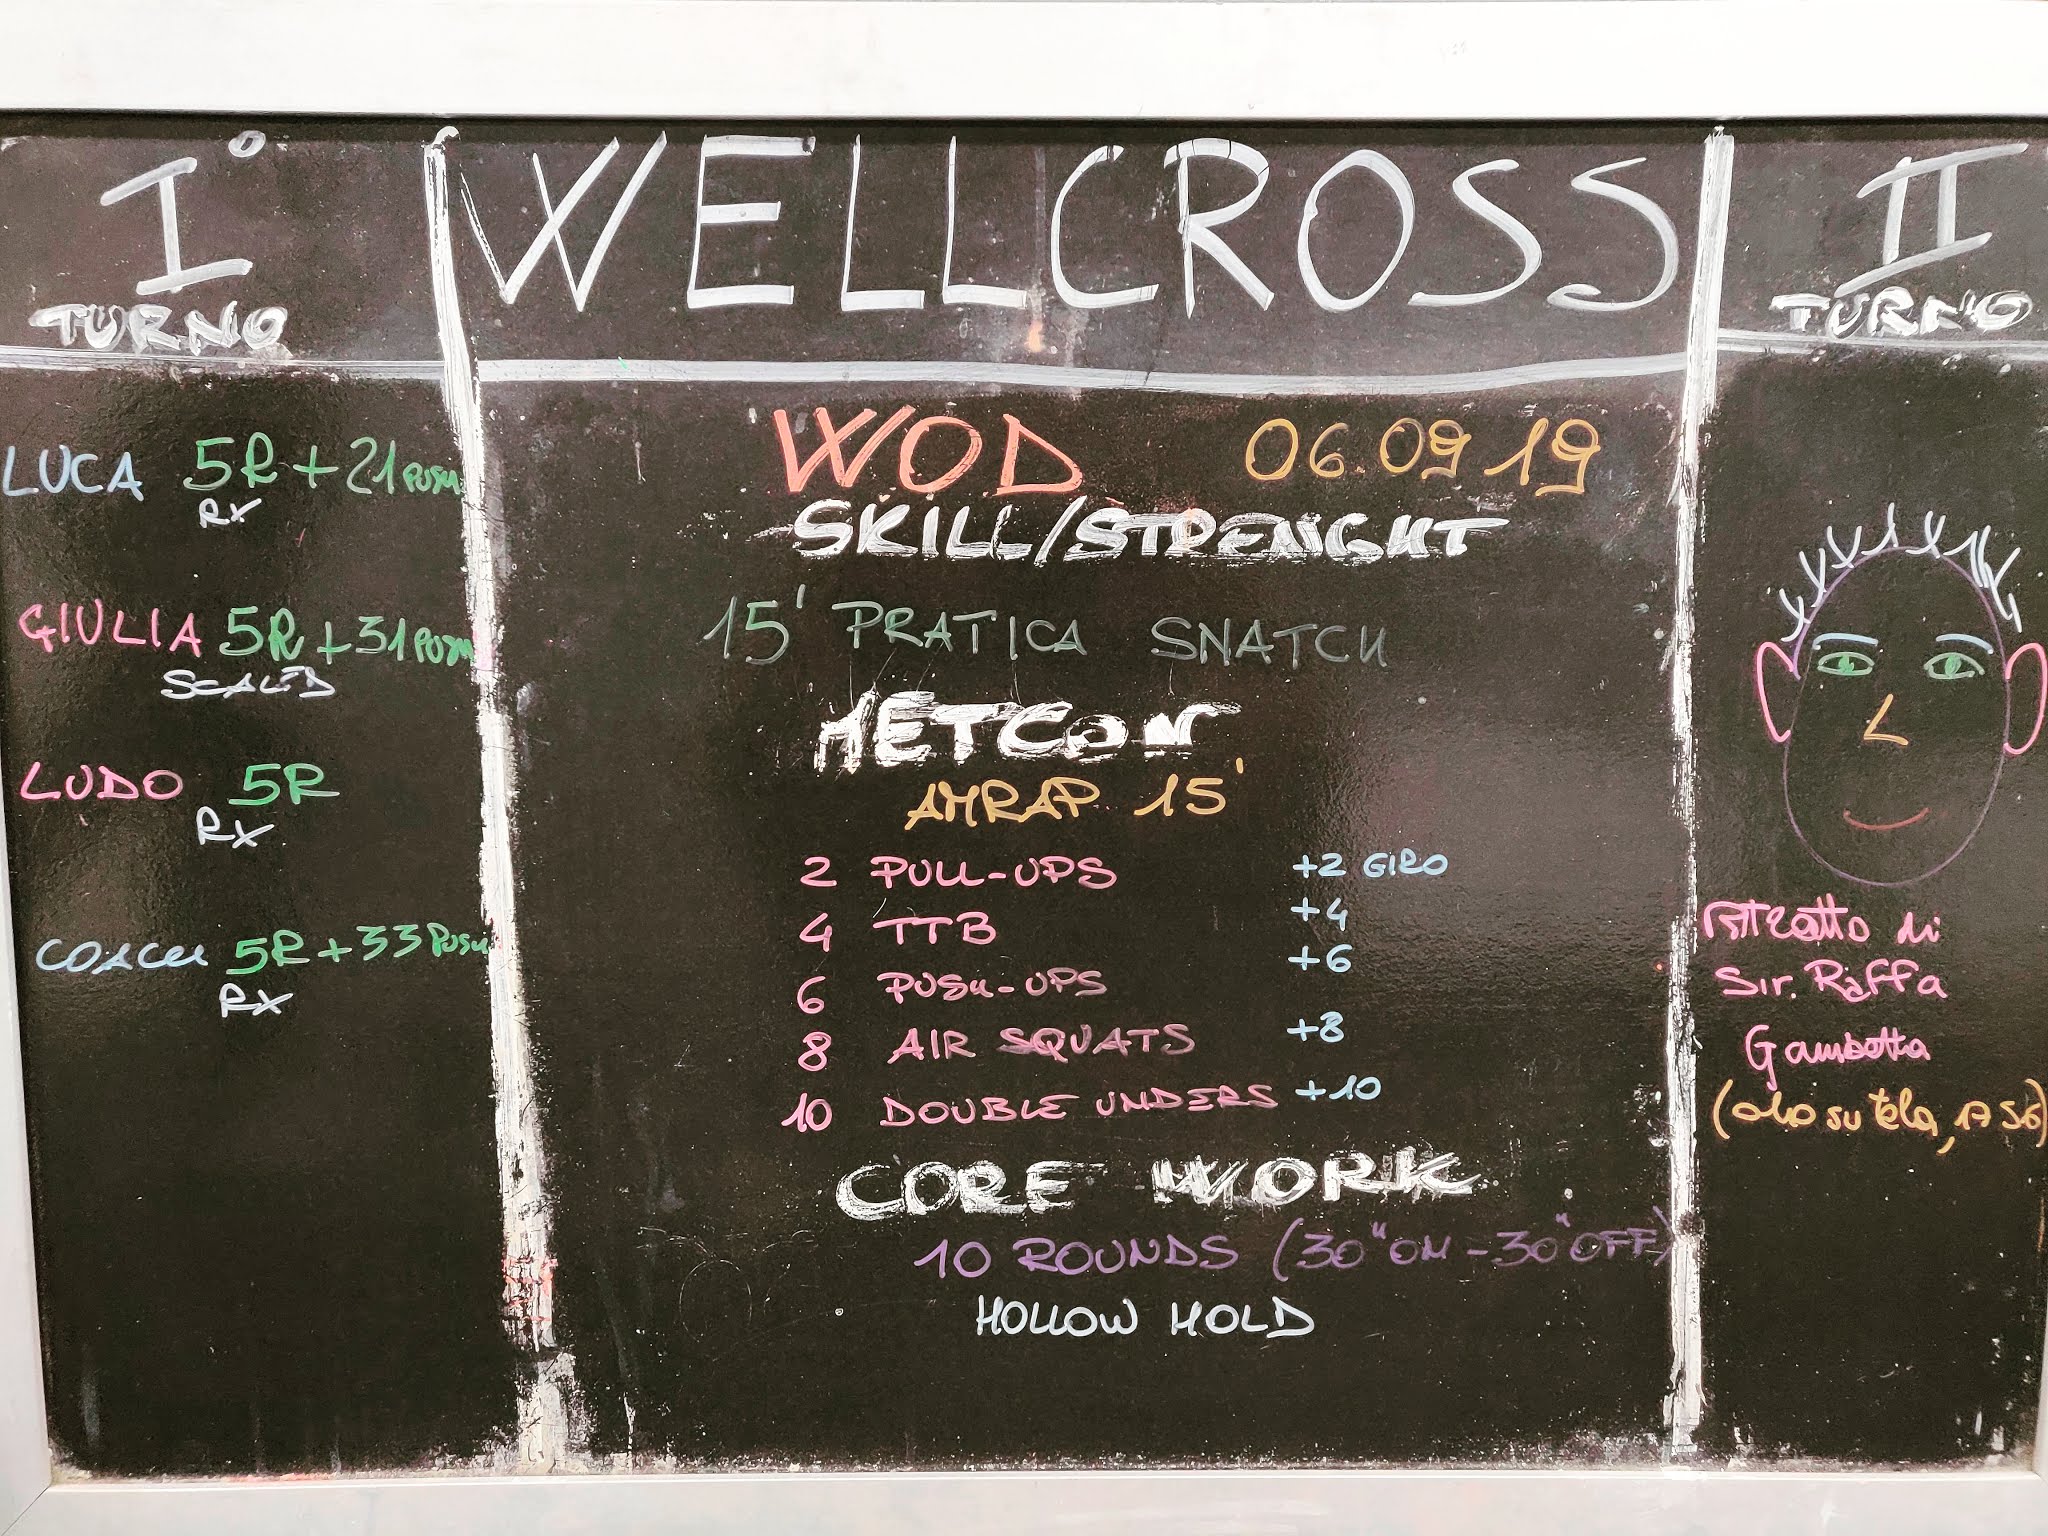 I°
TURNO
LUCA 5R + 21 PUSH
RX
GIULIA 5R + 31 PUSH
SCALED
LUDO 5R
RX
COACH 5R + 33 PUSH
RX
WELLCROSS
WOD 06.09 19
SKILL/STRENGHT
15' PRATICA SNATCH
METCON
AMRAP 15'
2 PULL-UPS +2 GIRO
4 TTB +4
6 PUSH-UPS +6
8 AIR SQUATS +8
10 DOUBLE UNDERS +10
CORE WORK
10 ROUNDS (30" ON - 30" OFF)
HOLLOW HOLD
II
TURNO
Ritratto di
Sir. Raffa
Gambetta
(olio su tela, 1756)